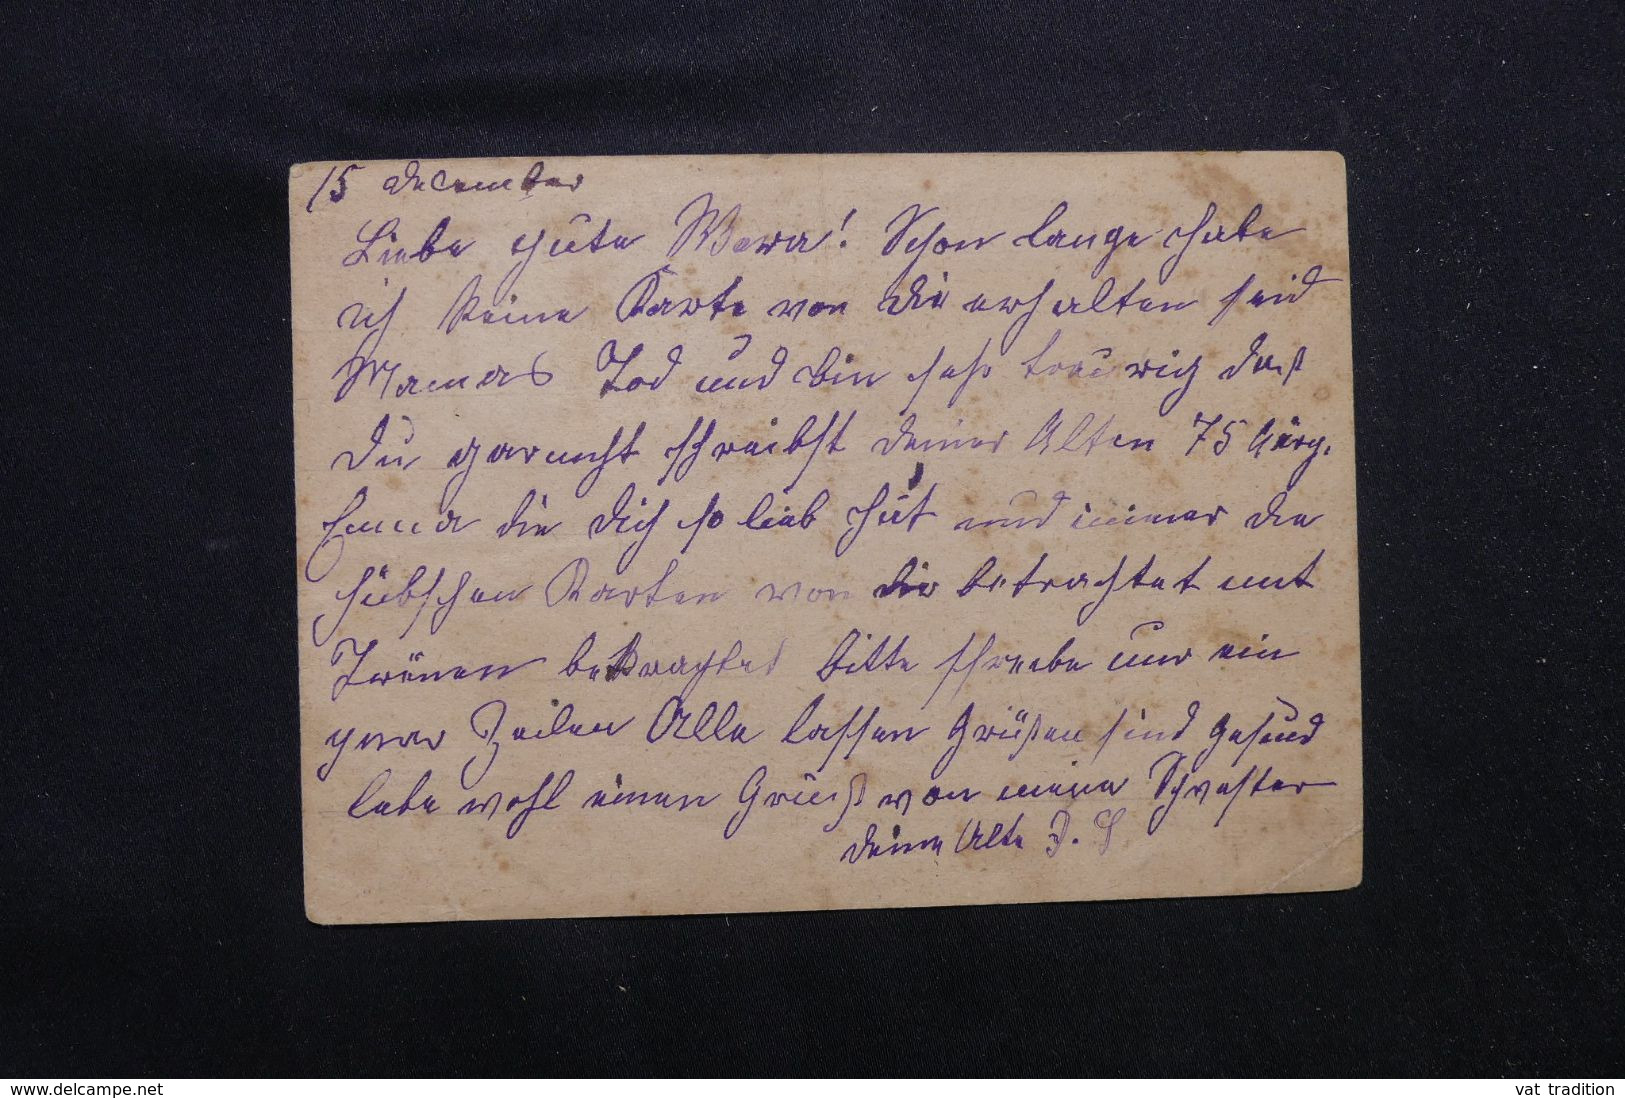 15 December
Liebe gute Wera! Schon lange habe
ich keine Karte von dir erhalten seid
Mamas Tod und bin sehr traurig daß
du garnicht schreibst deiner Alten 75
Emma die dich so lieb hat und immer die
hübschen Karten von dir betrachtet mit
Tränen betrachtet bitte schreibe nur ein
paar Zeilen Alle lassen Grüßen sind gesund
lebe wohl einen Gruß von meine Schwester
deine Alte
www.delcampe.net
vat tradition